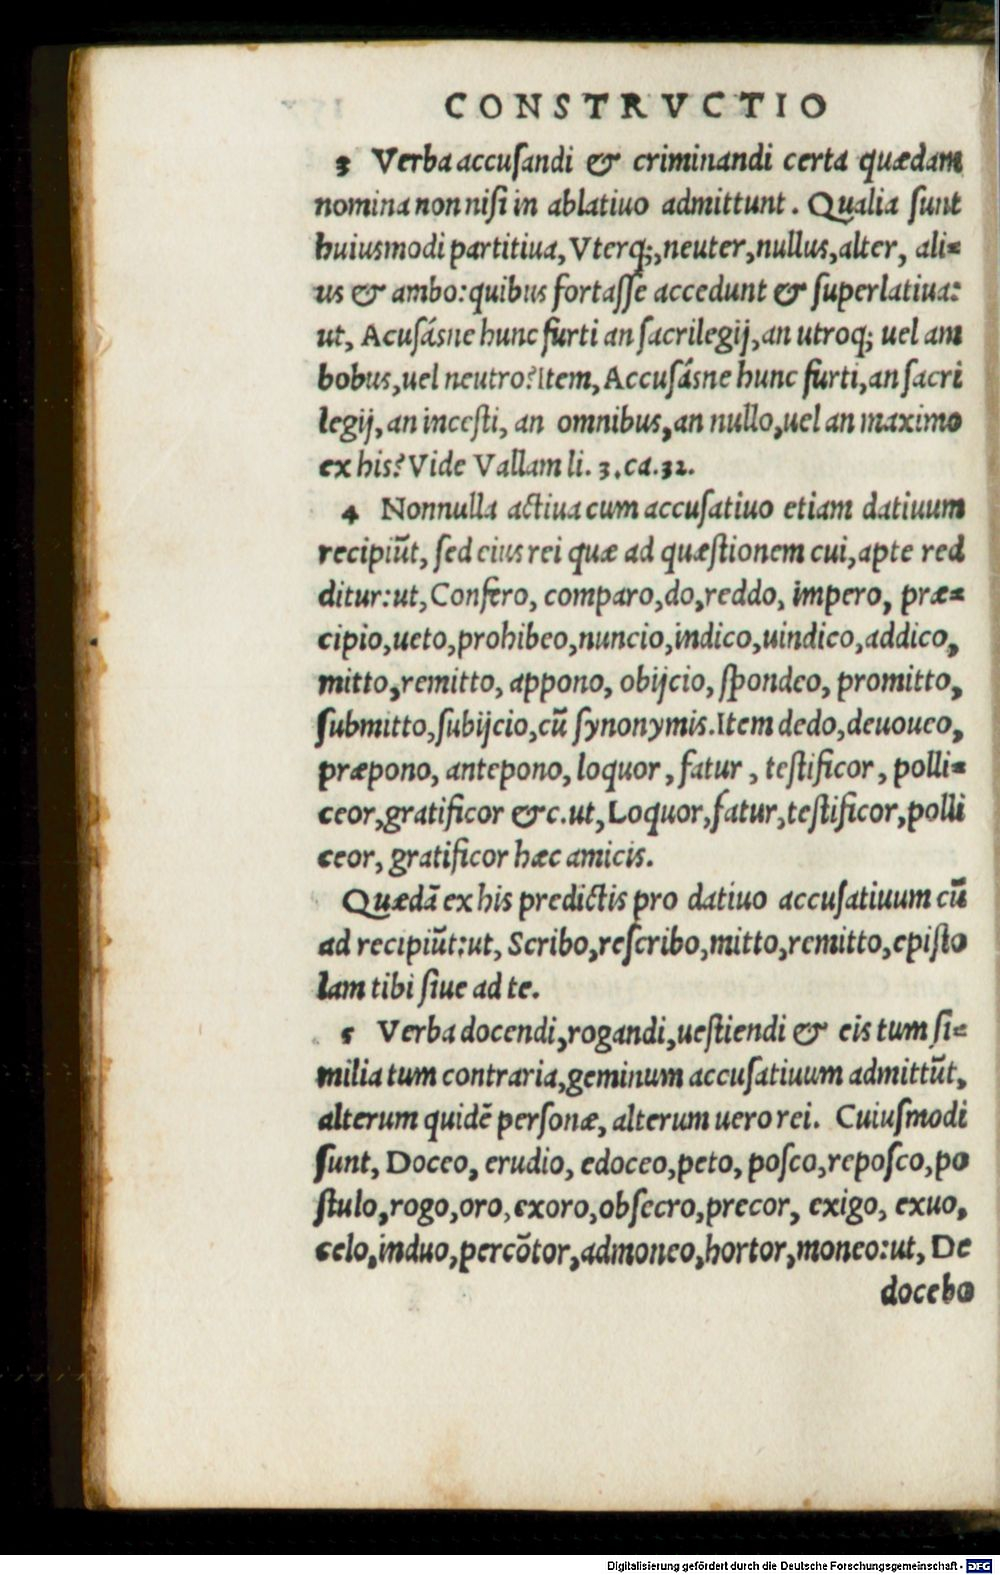 CONSTRVCTIO
3 Verba accuſandi & criminandi certa quædam
nomina non niſi in ablatiuo admittunt. Qualia ſunt
huiusmodi partitiua, Vterq;,neuter,nullus,alter, ali=
us & ambo:quibus fortaſſe accedunt & ſuperlatiua:
ut, Acuſásne hunc furti an ſacrilegij,an utroq; uel am
bobus,uel neutro?Item, Accuſásne hunc furti,an ſacri
legij,an inceſti, an omnibus,an nullo,uel an maximo
ex his? Vide Vallam li. 3.ca.32.
4 Nonnulla actiua cum accuſatiuo etiam datiuum
recipiũt, ſed eius rei quæ ad quæſtionem cui,apte red
ditur:ut,Confero, comparo,do,reddo, impero, præ=
cipio,ueto,prohibeo,nuncio,indico,uindico,addico,
mitto,remitto, appono, obijcio, ſpondeo, promitto,
ſubmitto,ſubijcio,cũ ſynonymis.Item dedo,deuoueo,
præpono, antepono, loquor, fatur, teſtificor, polli=
ceor,gratificor &c.ut,Loquor,fatur,teſtificor,polli
ceor, gratificor hæc amicis.
Quædã ex his predictis pro datiuo accuſatiuum cũ
ad recipiũt:ut, Scribo,reſcribo,mitto,remitto,epiſto
lam tibi ſiue ad te.
5 Verba docendi,rogandi,ueſtiendi & eis tum ſi=
milia tum contraria,geminum accuſatiuum admittũt,
alterum quidẽ perſonæ, alterum uero rei. Cuiuſmodi
ſunt, Doceo, erudio, edoceo,peto, poſco,repoſco,po
ſtulo,rogo,oro,exoro,obſecro,precor, exigo, exuo,
celo,induo,percõtor,admoneo,hortor,moneo:ut, De
docebo
Digitalisierung gefördert durch die Deutsche Forschungsgemeinschaft - DFG